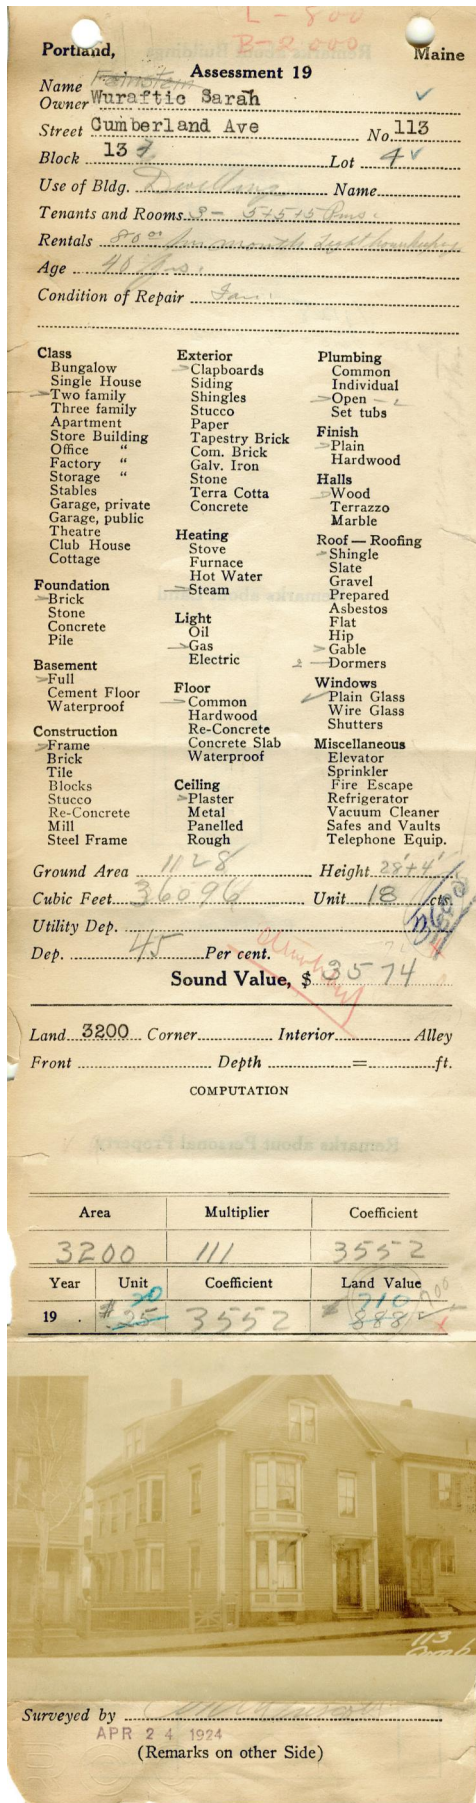 L - 800
B - 2000
Portland, Maine
Assessment 19
Name Feinstein
Owner Wuraftic Sarah
Street Cumberland Ave No. 113
Block 13 Lot 4
Use of Bldg. Dwelling Name
Tenants and Rooms 3 - 5+5+5 Rms.
Rentals 80.00 per month
Age 40 yrs.
Condition of Repair Fair.
Class
Bungalow
Single House
Two family
Three family
Apartment
Store Building
Office "
Factory "
Storage "
Stables
Garage, private
Garage, public
Theatre
Club House
Cottage
Foundation
Brick
Stone
Concrete
Pile
Basement
Full
Cement Floor
Waterproof
Construction
Frame
Brick
Tile
Blocks
Stucco
Re-Concrete
Mill
Steel Frame
Exterior
Clapboards
Siding
Shingles
Stucco
Paper
Tapestry Brick
Com. Brick
Galv. Iron
Stone
Terra Cotta
Concrete
Heating
Stove
Furnace
Hot Water
Steam
Light
Oil
Gas
Electric
Floor
Common
Hardwood
Re-Concrete
Concrete Slab
Waterproof
Ceiling
Plaster
Metal
Panelled
Rough
Plumbing
Common
Individual
Open - 2
Set tubs
Finish
Plain
Hardwood
Halls
Wood
Terrazzo
Marble
Roof — Roofing
Shingle
Slate
Gravel
Prepared
Asbestos
Flat
Hip
Gable
2 Dormers
Windows
Plain Glass
Wire Glass
Shutters
Miscellaneous
Elevator
Sprinkler
Fire Escape
Refrigerator
Vacuum Cleaner
Safes and Vaults
Telephone Equip.
Ground Area 1128 Height 28'+4'
Cubic Feet 36096 Unit 18 cts.
Utility Dep.
Dep. 45 Per cent.
Sound Value, $ 3574
Land 3200 Corner Interior Alley
Front Depth = ft.
COMPUTATION
Area Multiplier Coefficient
3200 111 3552
Year Unit Coefficient Land Value
20 710 700
19 . $25 3552 $ 888
113
Cumb
Surveyed by
APR 24 1924
(Remarks on other Side)